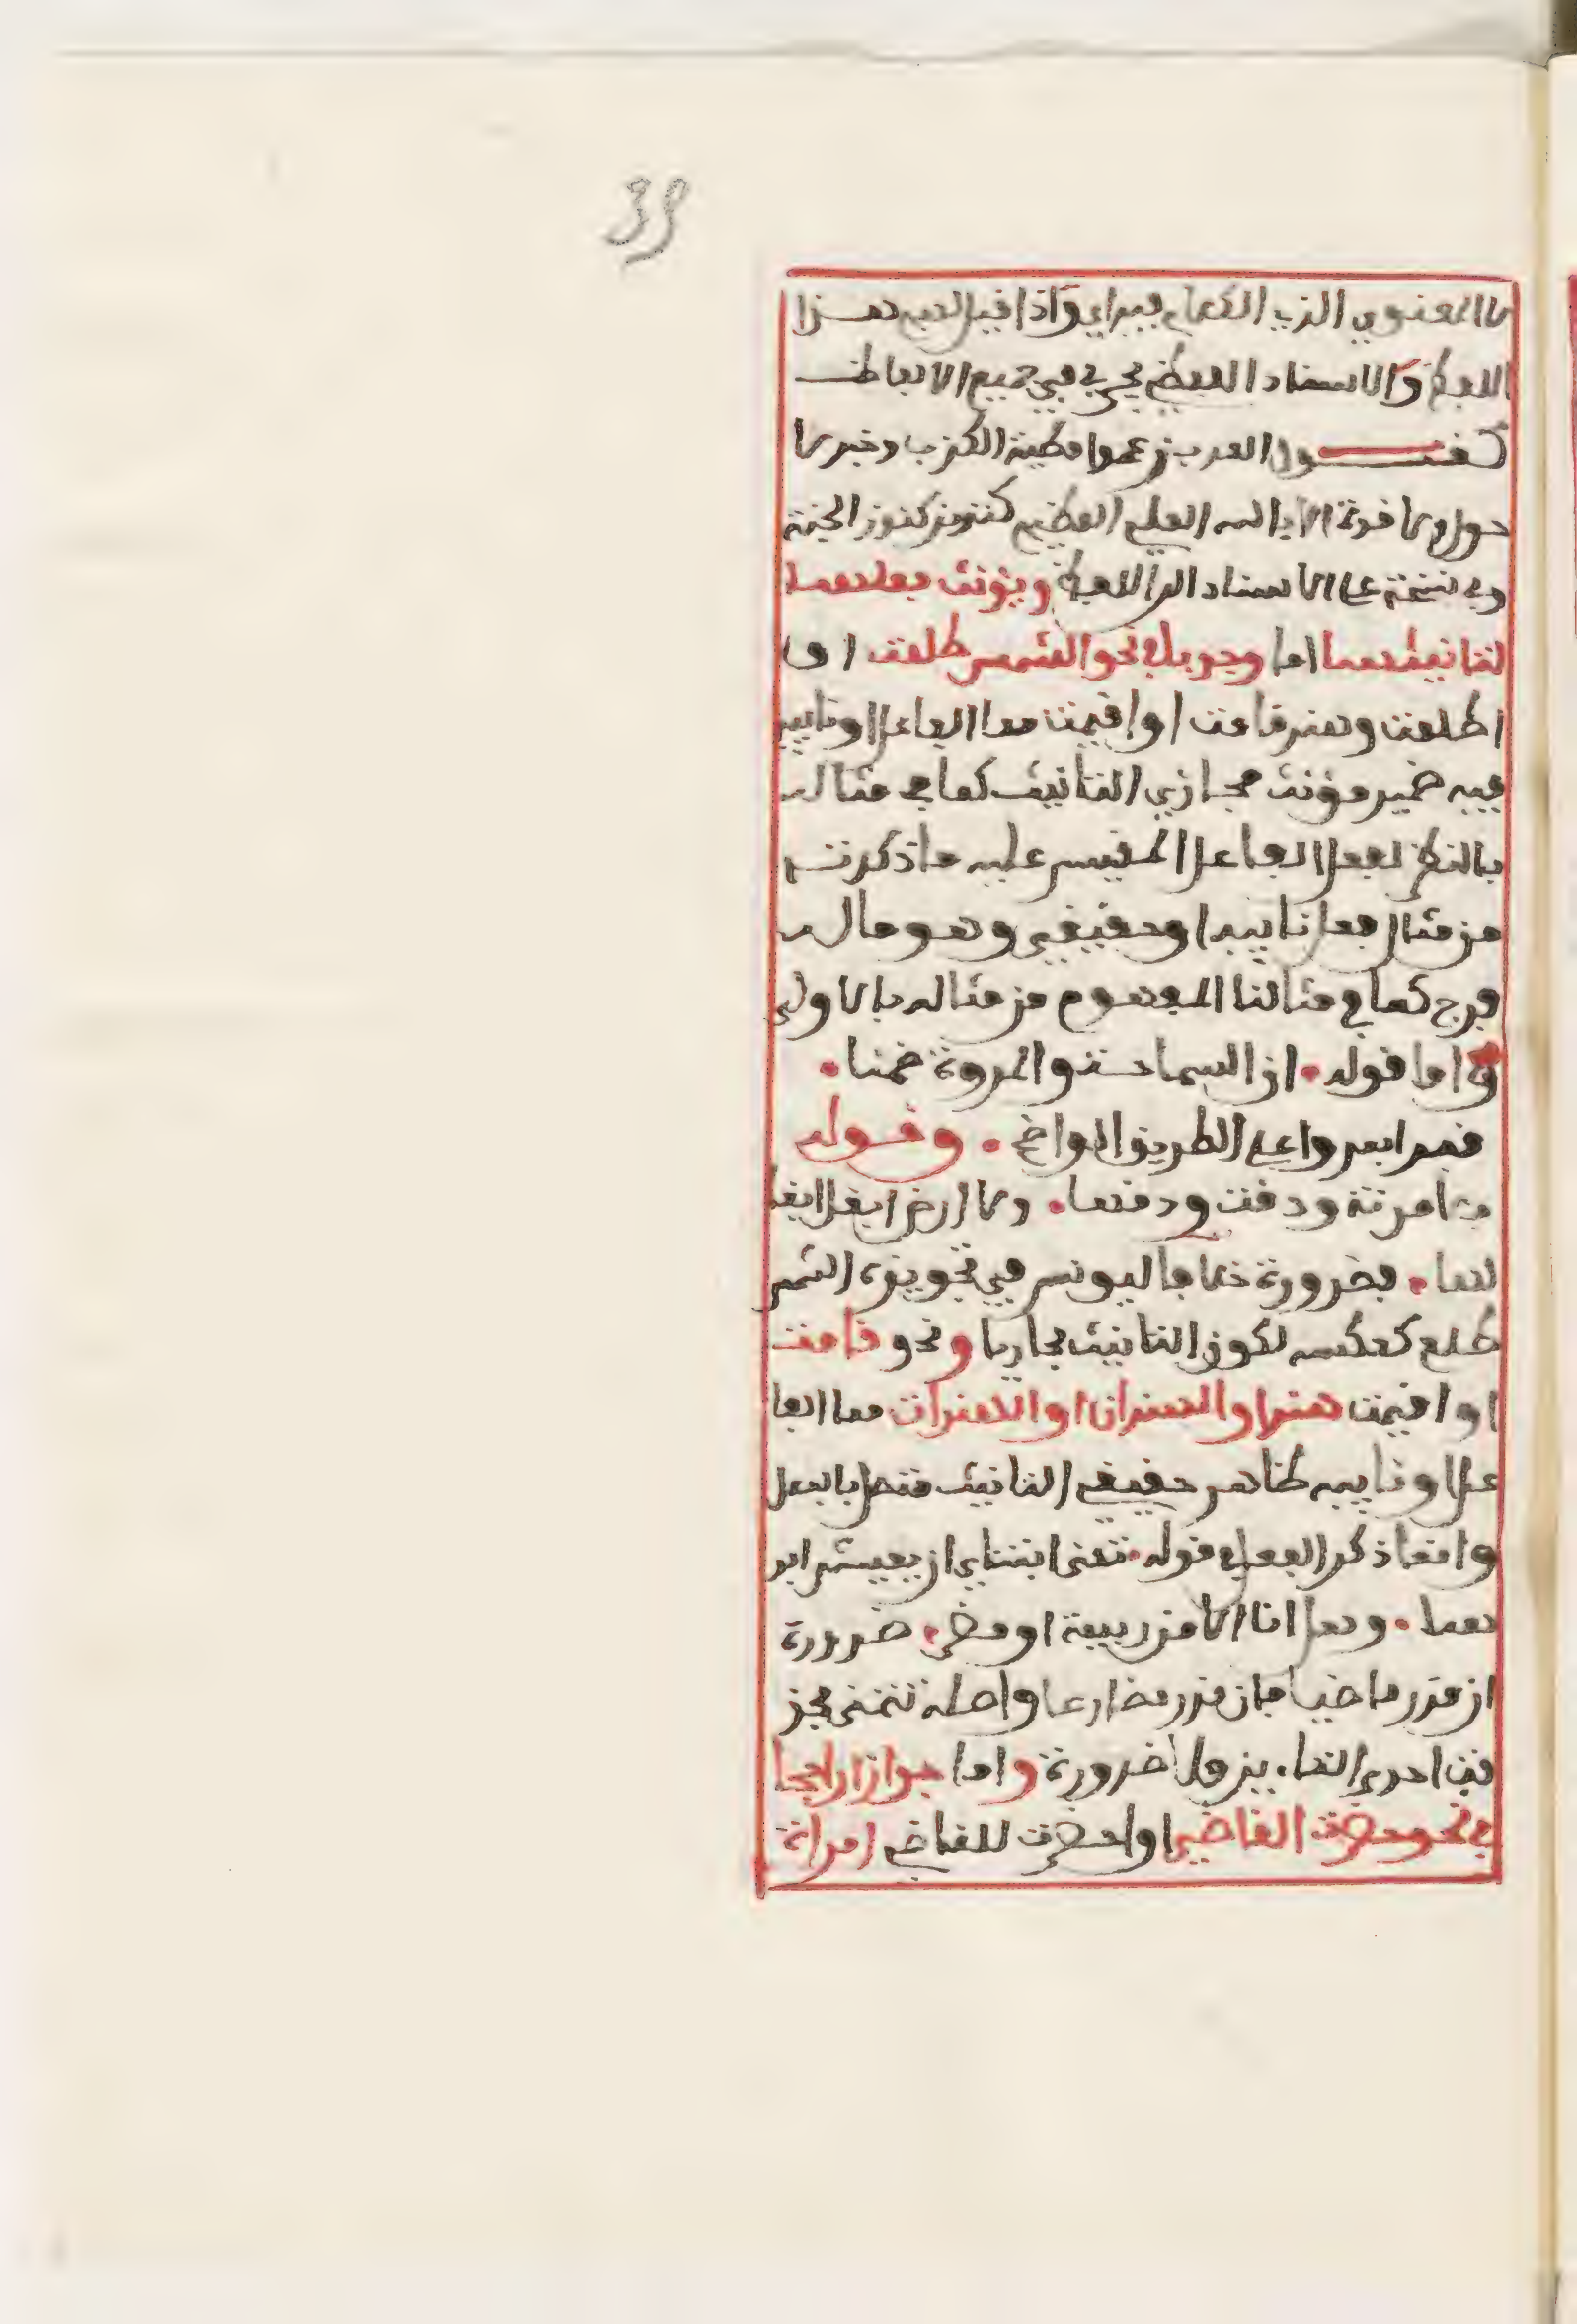 39
لا المعنوي الذي الكلام فيه اي واذا قيل لهم هذا
اللفظ والاسناد اللفظي يجري في جميع الالفاظ
كقول العرب زعموا مطية الكذب وخبر لا
حول ولا قوة الا بالله العلي العظيم كنز من كنوز الجنة
وفي نسخة على الاسناد الى اللفظ ويؤنث فعلهما
لتانيثهما اما وجوبا في نحو الشمس طلعت او
اطلعت وهند قامت او اقيمت مما الفاعل او نايبه
فيه ضمير مؤنث مجازي التانيث كما في مثاله
بالنظر لفعل الفاعل المقيس عليه ما ذكرته
من مثال فعل نايبه او حقيقي وهو ما له
فرج كما في مثالنا المفهوم من مثاله بالاولى
واما قوله • ان السماحة والمروة ضمنا •
قبرا بمرو على الطريق الواضح • وقوله
فلا مزنة ودقت ودقها • ولا ارض ابقل ابقا
لها • فضرورة خلافا ليونس في تجويزه الشمس
طلع كعكسه لكون التانيث مجازيا ونحو قامت
او اقيمت هند او الهندان او الهندات مما الفا
عل او نايبه ظاهر حقيقي التانيث متصل بالفعل
وانما ذكر الفعل في قوله • تمنى ابنتاي ان يعيش ابو
هما • وهل انا الا من ربيعة او مضر • ضرورة
ان قدر ماضيا فان قدر مضارعا واصله تتمنى فحذ
فت احدى التاء ين فلا ضرورة واما جوازا راجحا
في نحو حضرت القاضي او احضرت للقاضي امراة